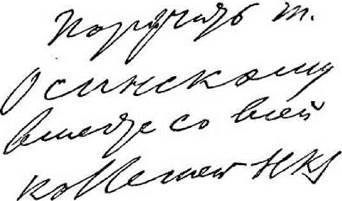 Поручить т.
Осинскому
вместе со всей
коллегией НКЗ